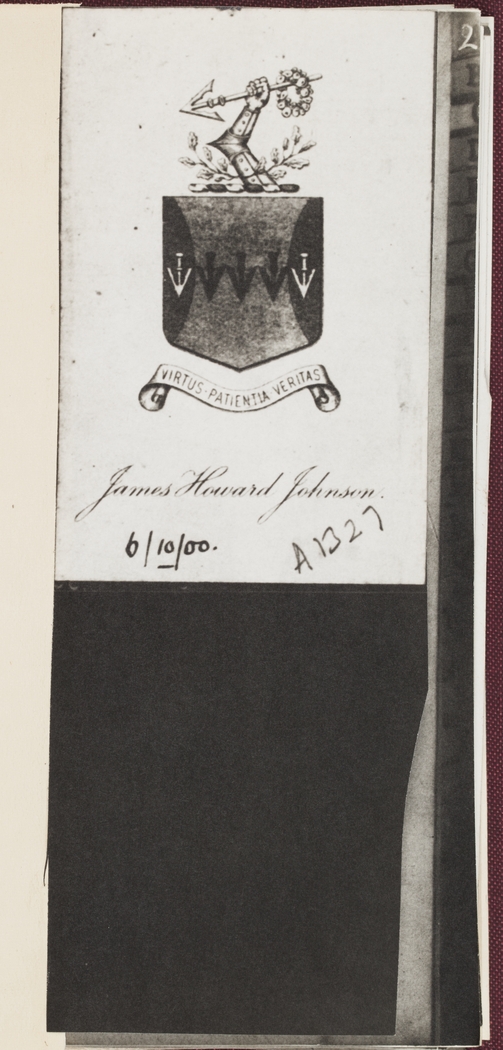 2
VIRTUS-PATIENTIA VERITAS
James Howard Johnson.
6/10/00.
A1327